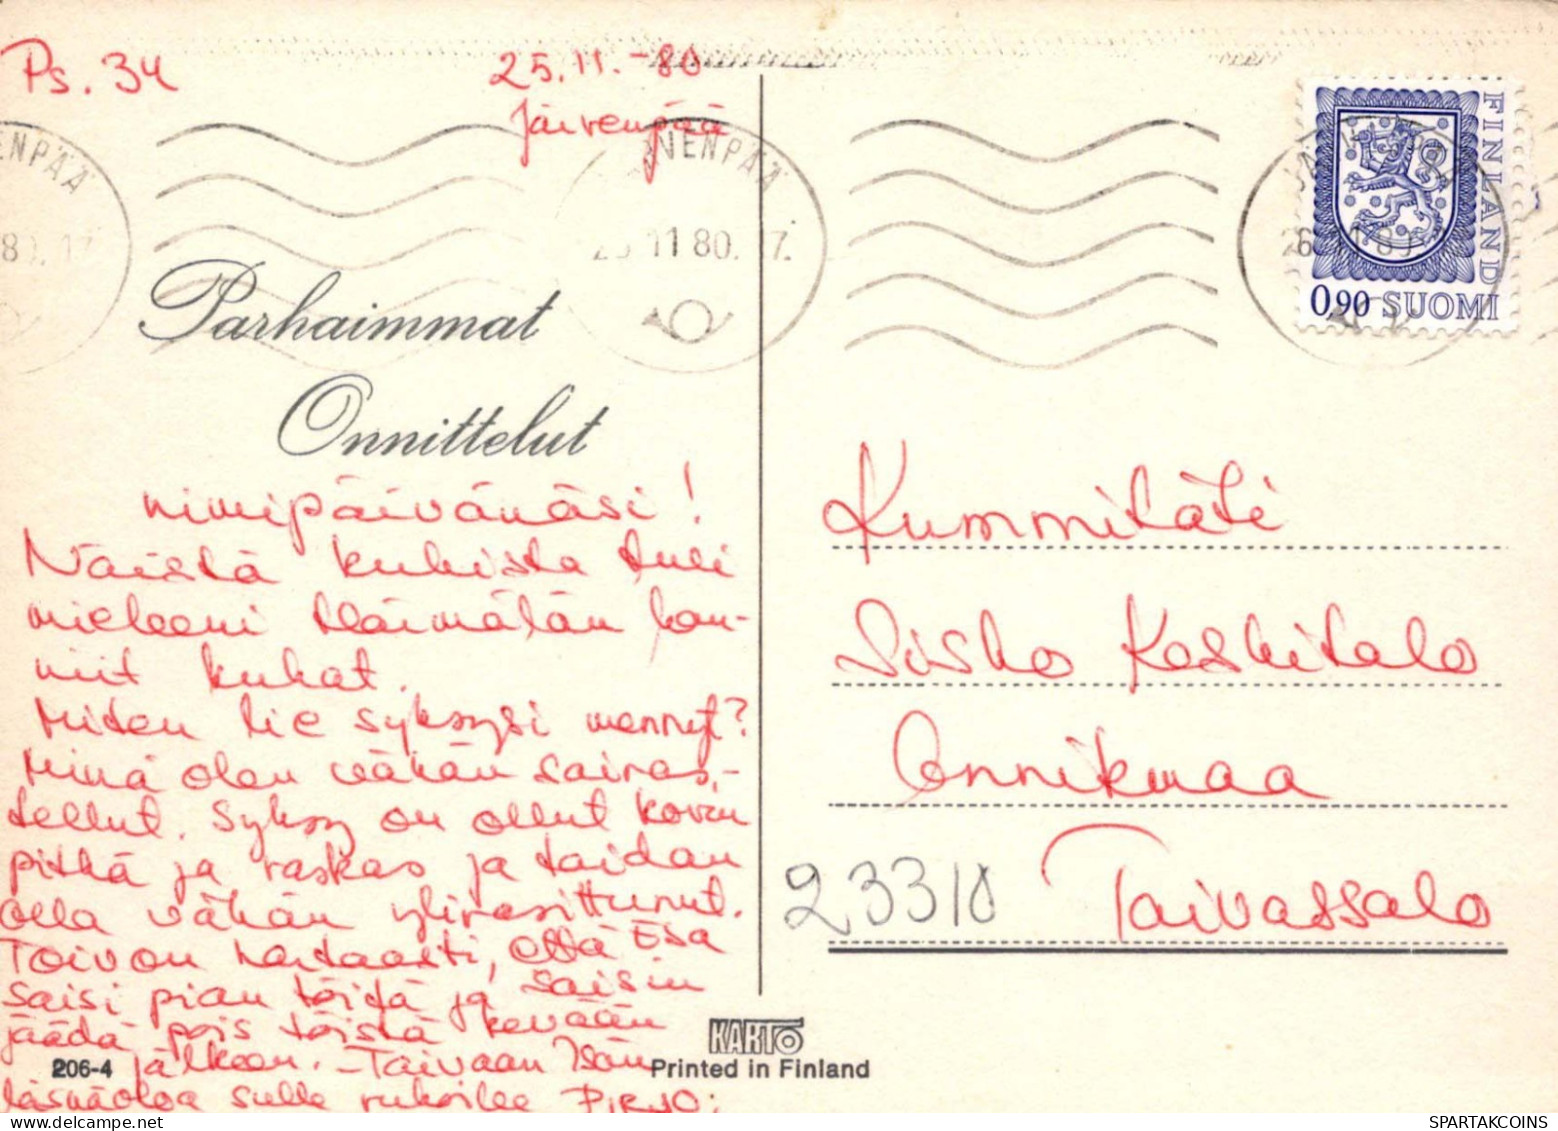 Ps. 34
25.11.-80
Järvenpää
ENPÄÄ
80.17.
VENPÄÄ
11 80. 17.
FINLAND
0,90 SUOMI
Parhaimmat
Onnittelut
nimipäivänäsi!
Näistä kukista tuli
mieleeni kau-
niit kukat.
Miten lie syksysi mennyt?
Minä olen vähän sairas-
tellut. Syksy on ollut kovin
pitkä ja raskas ja taidan
olla vähän ylirasittunut.
Toivon hartaasti, että Esa
saisi pian töitä ja saisin
jäädä pois töistä kevään
jälkeen. - Taivaan Isän
läsnäoloa sulle rukoilee PIRJO.
Kummitäti
Sisko Koskitalo
Onnikmaa
23310 Taivassalo
206-4
KARTO
Printed in Finland
SPARTAKCOINS